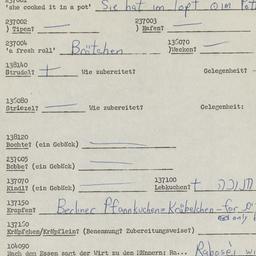 237001
'she cooked it in a pot' Sie hat im Topf
237002
) Tipen?
237003
) Hafen?
237004
'a fresh roll' Brötchen
136070
)Wecken?
138140
Strudel? + Wie zubereitet? Gelegenheit?
136080
Striezel? Wie zubereitet? Gelegenheit:
138120
Bochte? (ein Gebäck)
237005
Bobbe? (ein Gebäck)
137070
Kindl? (ein Gebäck)
137100
Lebkuchen? +
137150
Krapfen? Berliner Pfannkuchen = Kräbelchen - for
only
137150
Kräpfchen/Kräpflein? (Benennung? Zubereitungsweise?)
104090
Nach dem Essen sagt der Wirt zu den Männern: Ra...